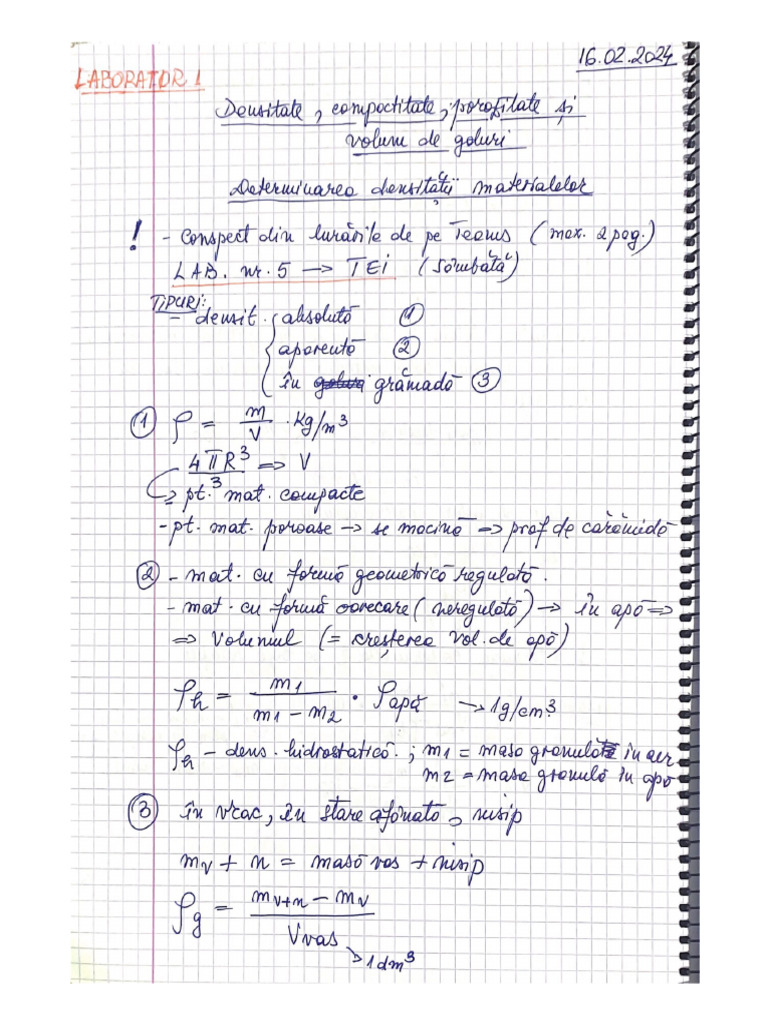 16.02.2024
LABORATOR 1
Densitate, compactitate, porozitate și
volum de goluri
Determinarea densității materialelor
! - Conspect din lurările de pe Teams (max. 2 pag.)
LAB. nr. 5 → TEI (Sâmbătă)
TIPURI:
- densit. absolută ①
aparentă ②
în grămadă ③
① ρ = m/V · kg/m³
4πR³/3 => V
=> pt. mat. compacte
- pt. mat. poroase → se macină => praf de cărămidă
② - mat. cu formă geometrică regulată.
- mat. cu formă oarecare (neregulată) → în apă =>
=> Volumul (= creșterea vol. de apă)
ρh = m1/(m1 - m2) · ρapă → 1g/cm³
ρh - dens. hidrostatică. ; m1 = masa granulă în aer
m2 = masa granulă în apă
③ în vrac, în stare afânată, nisip
mv + n = masă vas + nisip
ρg = (mv+n - mv)/Vvas
→ 1 dm³